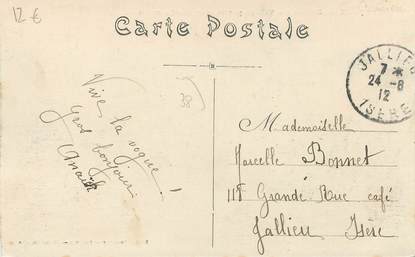 12 €
Carte Postale
JALLIEU
7 *
24 - 8
12
ISERE
38
Vive la vogue !
Gros bonjour
Anaïs
Mademoiselle
Marcelle Bonnet
115 Grande Rue café
Jallieu Isère